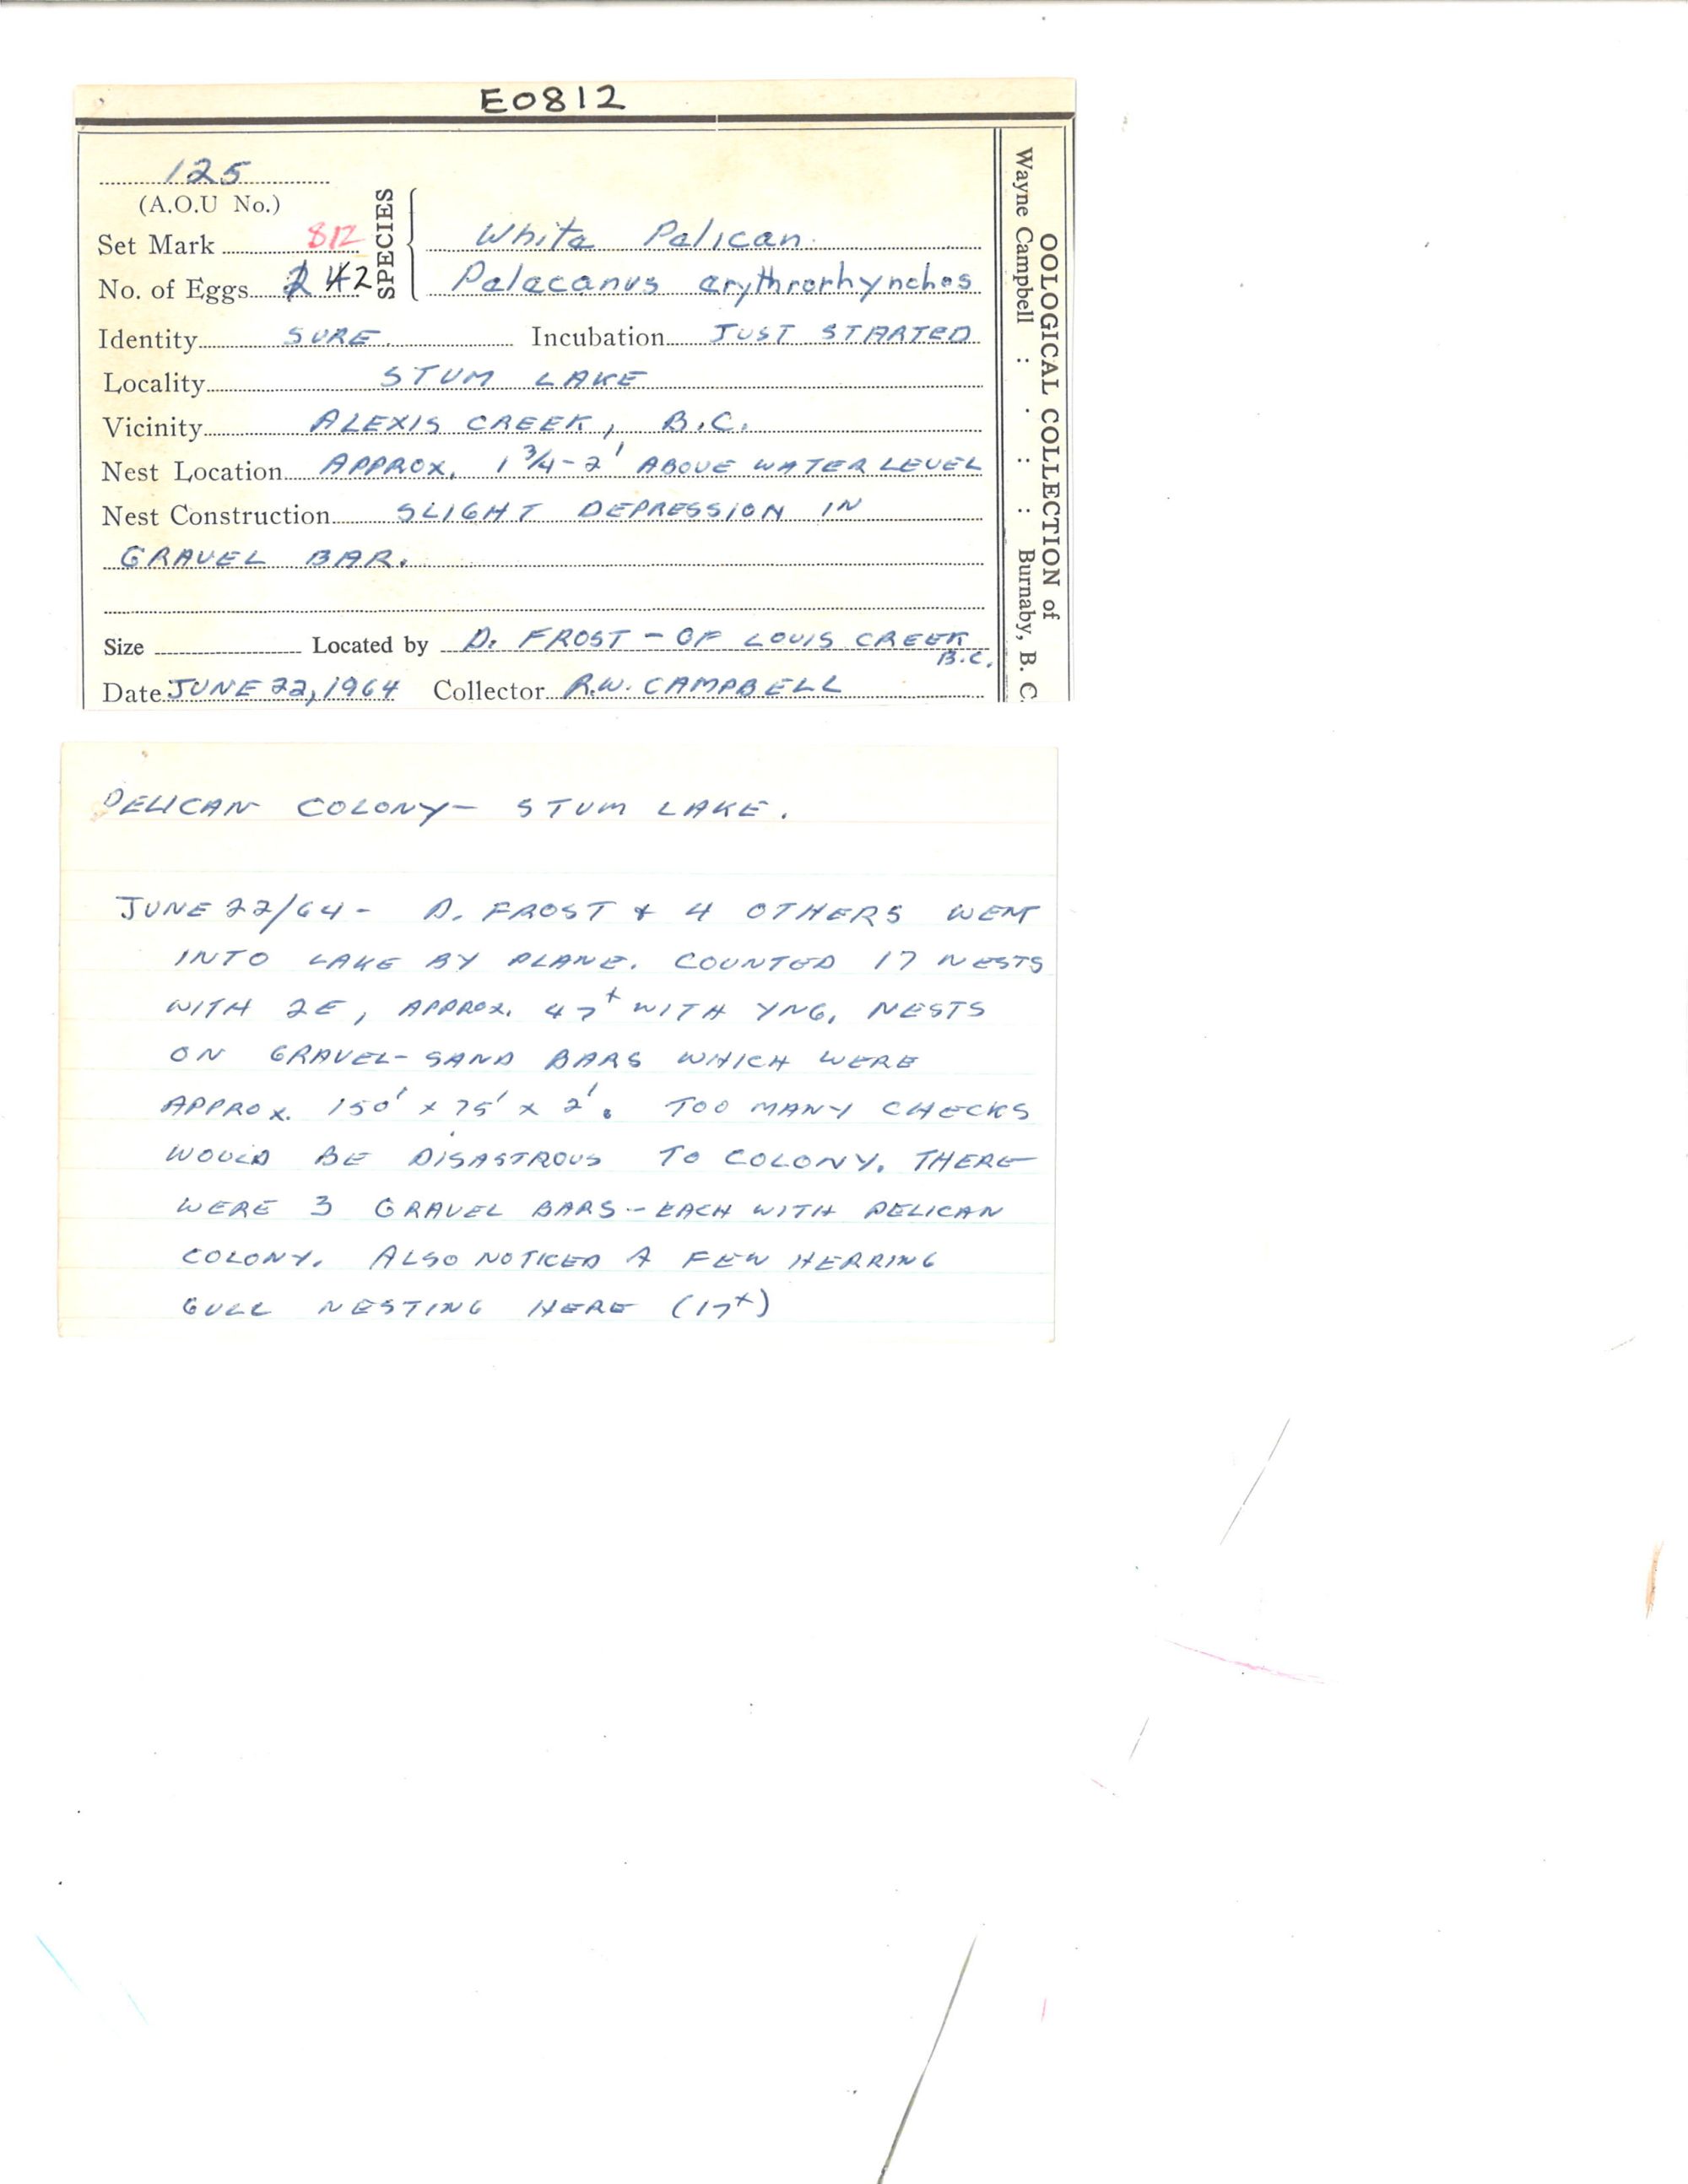 E0812
125
(A.O.U No.)
Set Mark 812
No. of Eggs 2
SPECIES
White Pelican.
Pelecanus erythrorhynchos
Identity SURE. Incubation JUST STARTED
Locality STUM LAKE
Vicinity ALEXIS CREEK, B.C.
Nest Location APPROX. 1 3/4-2' ABOVE WATER LEVEL
Nest Construction SLIGHT DEPRESSION IN
GRAVEL BAR.
Size Located by D. FROST - OF LOUIS CREEK
B.C.
Date JUNE 22, 1964 Collector R.W. CAMPBELL
OOLOGICAL COLLECTION of
Wayne Campbell : : : Burnaby, B. C.
PELICAN COLONY- STUM LAKE.
JUNE 22/64- D. FROST & 4 OTHERS WENT
INTO LAKE BY PLANE. COUNTED 17 NESTS
WITH 2E, APPROX. 47+ WITH YNG. NESTS
ON GRAVEL-SAND BARS WHICH WERE
APPROX. 150' x 75' x 2'. TOO MANY CHECKS
WOULD BE DISASTROUS TO COLONY. THERE
WERE 3 GRAVEL BARS - EACH WITH PELICAN
COLONY. ALSO NOTICED A FEW HERRING
GULL NESTING HERE (17+)